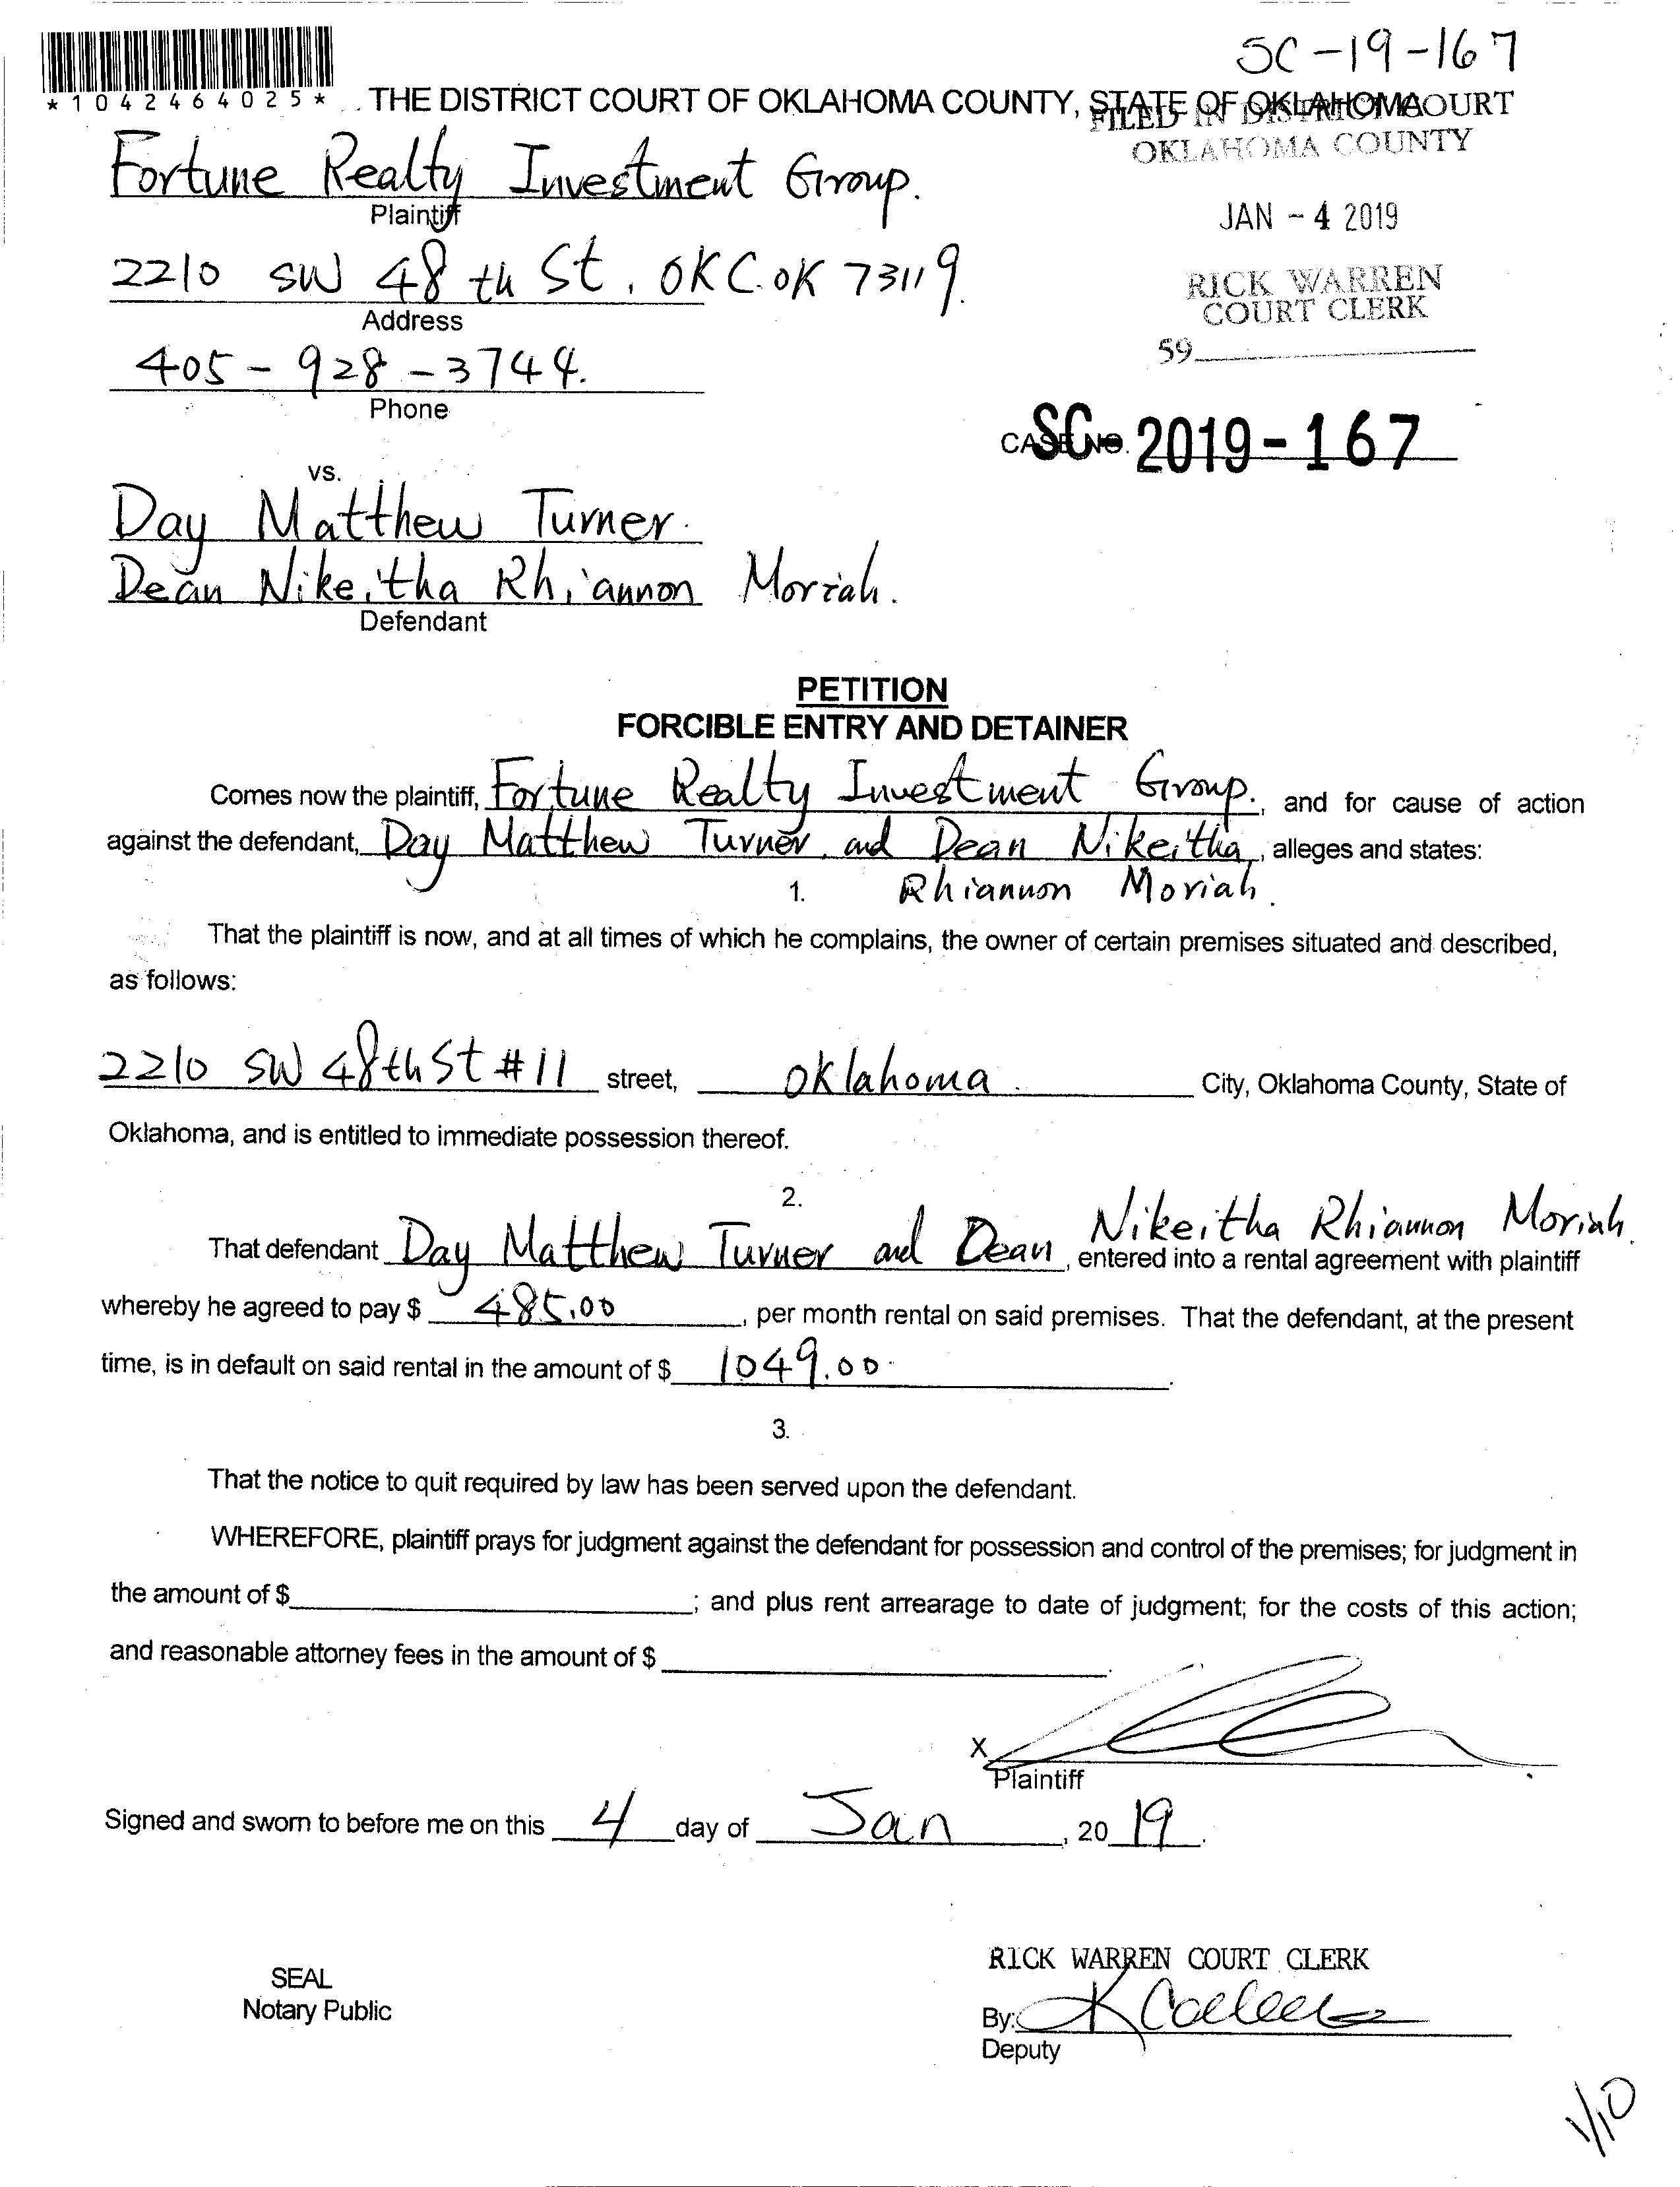 SC-19-167
*1042464025*
THE DISTRICT COURT OF OKLAHOMA COUNTY, STATE OF OKLAHOMA
FILED IN DISTRICT COURT
OKLAHOMA COUNTY
Fortune Realty Investment Group.
Plaintiff
JAN - 4 2019
2210 SW 48 th St, OKC. OK 73119.
Address
RICK WARREN
COURT CLERK
59
405 - 928 - 3744.
Phone
CASE NO. SC- 2019 - 167
vs.
Day Matthew Turner.
Dean Nikeitha Rhiannon Moriah.
Defendant
PETITION
FORCIBLE ENTRY AND DETAINER
Comes now the plaintiff, Fortune Realty Investment Group., and for cause of action
against the defendant, Day Matthew Turner, and Dean Nikeitha, alleges and states:
1. Rhiannon Moriah.
That the plaintiff is now, and at all times of which he complains, the owner of certain premises situated and described,
as follows:
2210 SW 48th St #11 street, Oklahoma City, Oklahoma County, State of
Oklahoma, and is entitled to immediate possession thereof.
2.
That defendant Day Matthew Turner and Dean Nikeitha Rhiannon Moriah., entered into a rental agreement with plaintiff
whereby he agreed to pay $ 485.00, per month rental on said premises. That the defendant, at the present
time, is in default on said rental in the amount of $ 1049.00.
3.
That the notice to quit required by law has been served upon the defendant.
WHEREFORE, plaintiff prays for judgment against the defendant for possession and control of the premises; for judgment in
the amount of $; and plus rent arrearage to date of judgment; for the costs of this action;
and reasonable attorney fees in the amount of $.
X
Plaintiff
Signed and sworn to before me on this 4 day of Jan, 2019.
RICK WARREN COURT CLERK
SEAL
Notary Public
By: K
Deputy
1/10